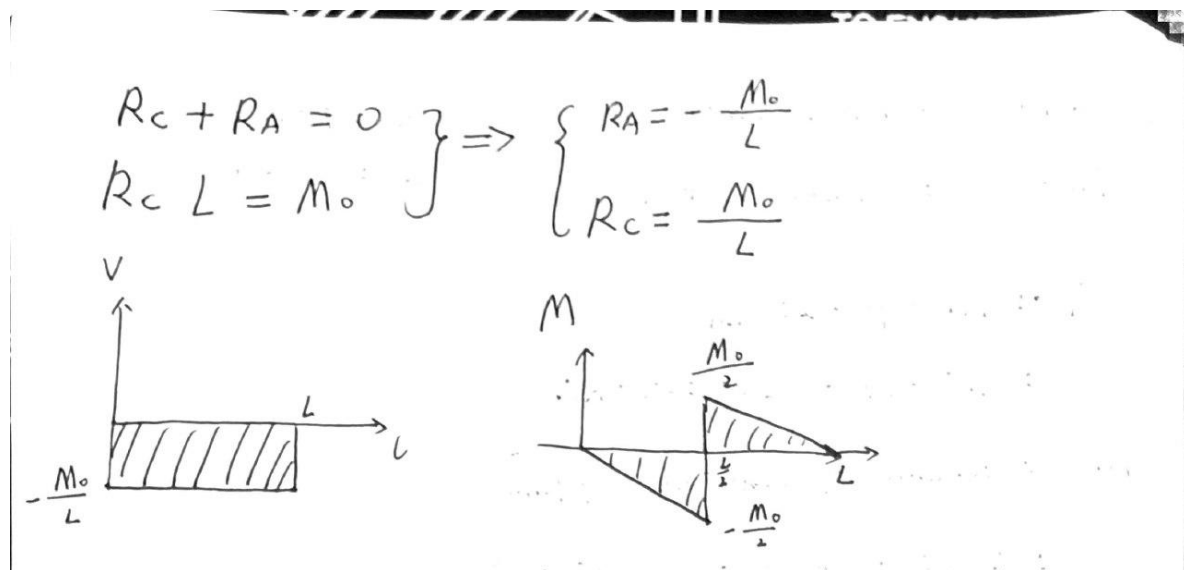 Rc + RA = 0 } ⇒ { RA = - M₀/L
Rc L = M₀ } { Rc = M₀/L
V
L
- M₀/L
M
M₀/2
L/2
L
- M₀/2